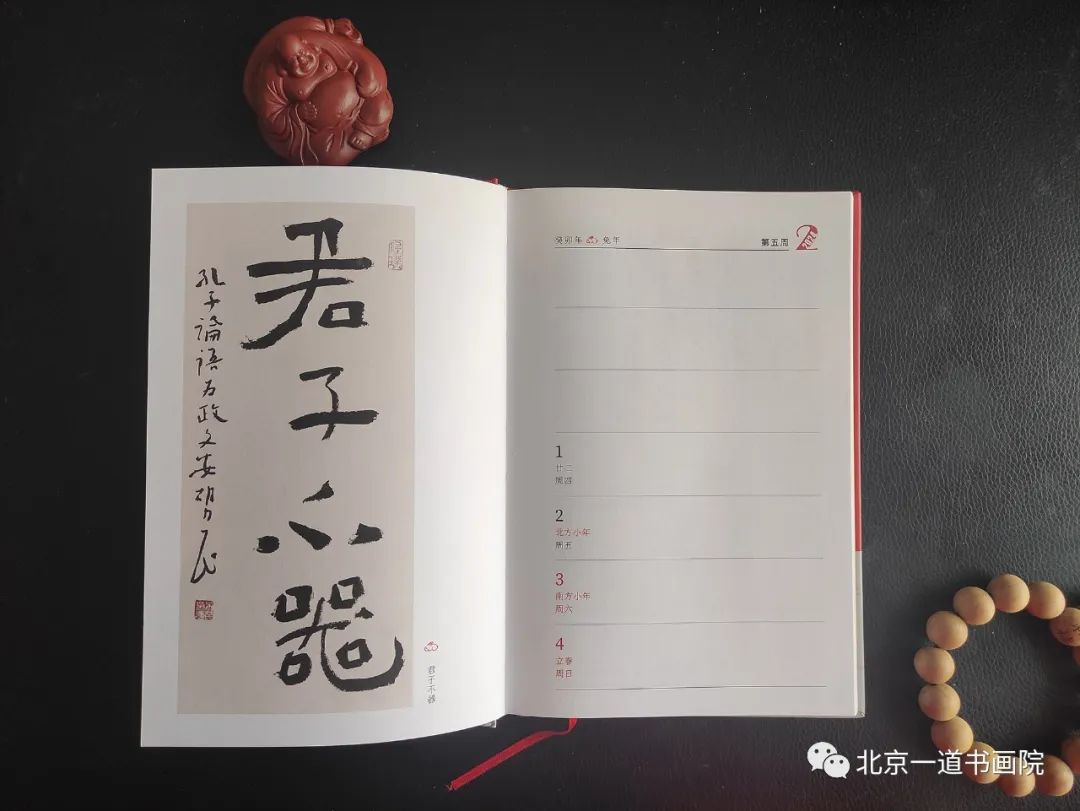 君子不器
孔子論語为政文安胡
君子不器
癸卯年 兔年
第五周
2
2024
1
廿二
周四
2
北方小年
周五
3
南方小年
周六
4
立春
周日
北京一道书画院